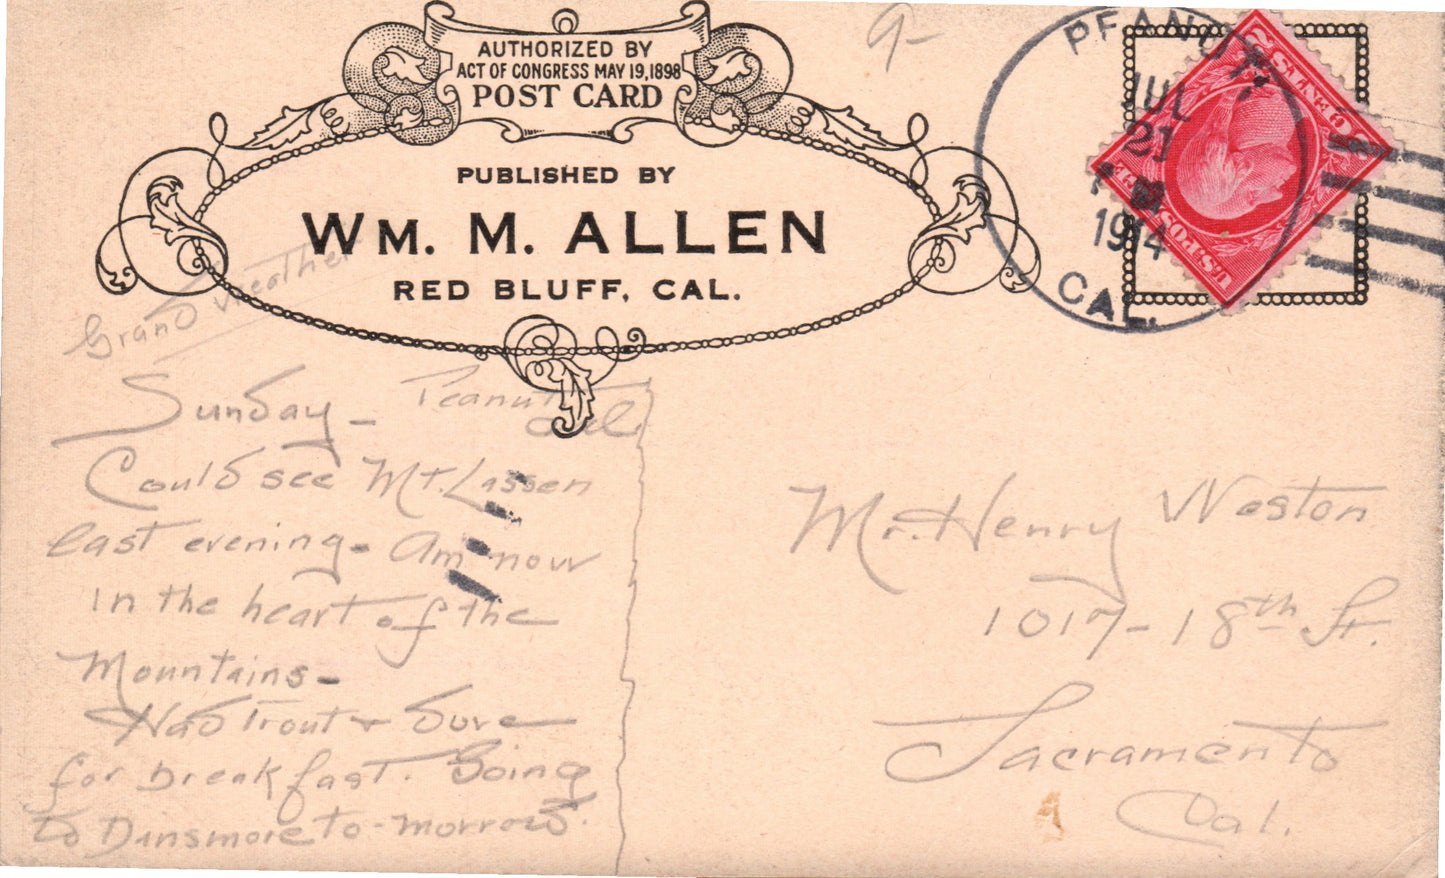 AUTHORIZED BY
ACT OF CONGRESS MAY 19, 1898
POST CARD
PUBLISHED BY
WM. M. ALLEN
RED BLUFF, CAL.
9-
PEANUT
JUL
21
1914
CAL.
2 CENTS 2
U.S. POSTAGE
Grand weather
Sunday - Peanut
Cal
Could see Mt. Lassen
last evening - Am now
in the heart of the
Mountains -
Had Trout & Dove
for breakfast. Going
to Dinsmore to-morrow.
Mr. Henry Weston
1017 - 18th St.
Sacramento
Cal.